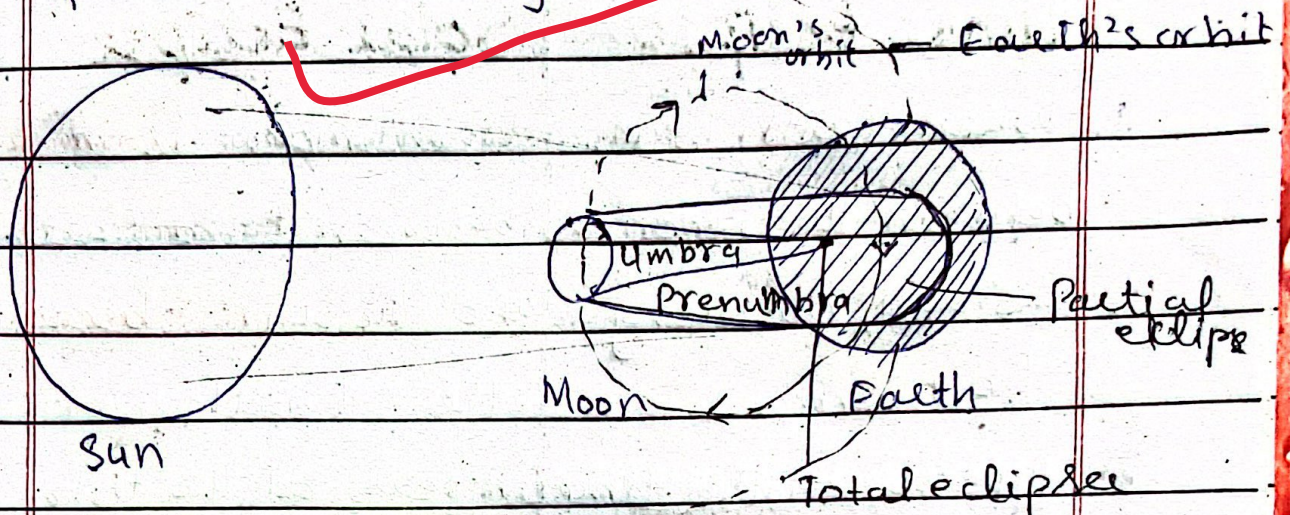 Moon's
orbit
Earth's orbit
Umbra
Prenumbra
Partial
eclips
Moon
Earth
Sun
Total eclipse